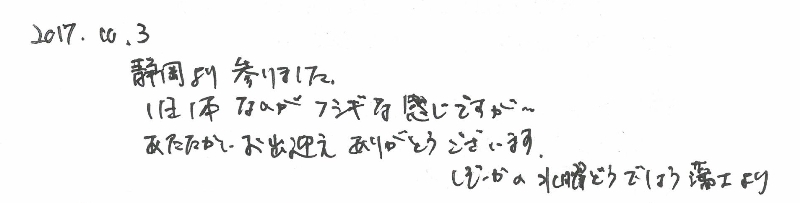 2017. 10. 3
静岡より 参りました。
なのが フシギな 感じですが〜
あたたかい お出迎え ありがとうございます。
しぞーかの 水曜どうでしょう 藩士より